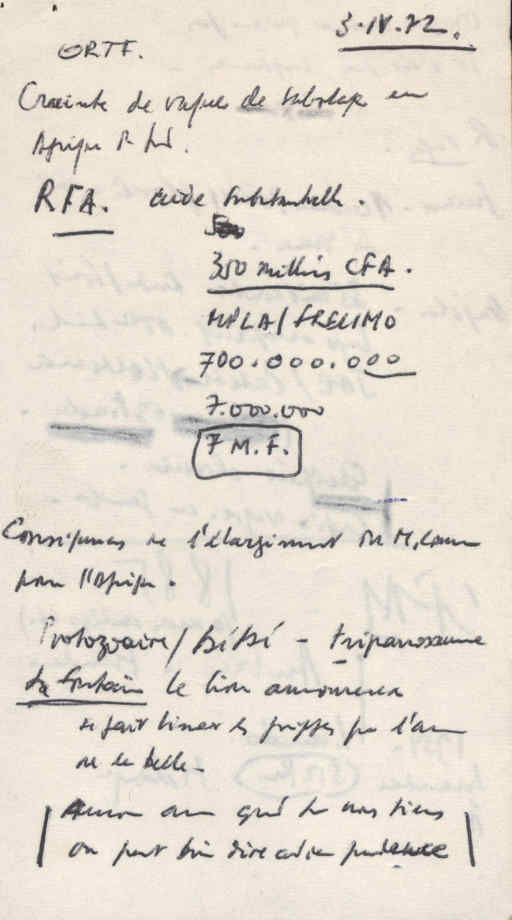 3.IV.72.
ORTF.
Crainte de vague de sabotage en
Afrique
RFA. aide substantielle.
350 millions CFA.
MPLA/FRELIMO
700.000.000
7.000.000
7 M.F.
Conséquences de l'élargissement du M. Commun
pour l'Afrique.
Protozoaire/ - tripanosome
La Fontaine le lion amoureux
se fait limer les griffes par l'
de la belle.
Amour amour quand tu nous tiens
on peut bien dire adieu prudence